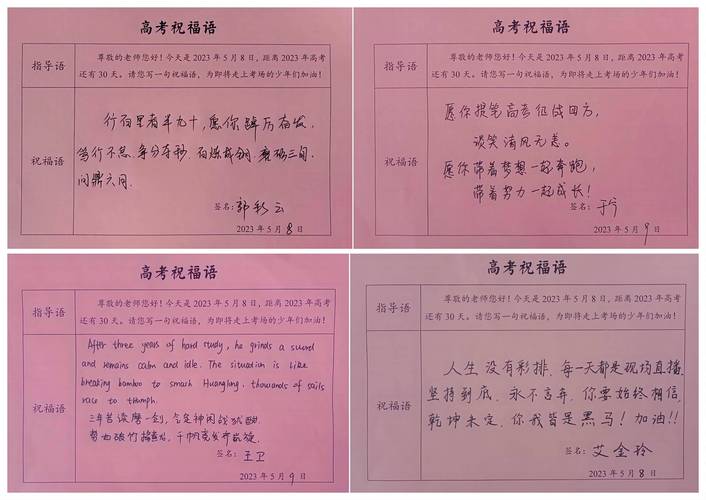 高考祝福语
指导语
尊敬的老师您好!今天是2023年5月8日,距离2023年高考
还有30天。请您写一句祝福语,为即将走上考场的少年们加油!
祝福语
行百里者半九十,愿你踔厉奋发,
笃行不怠,争分夺秒,百炼成钢,磨砺三旬,
问鼎六月.
签名:郭彩云
2023年5月8日
高考祝福语
指导语
尊敬的老师您好!今天是2023年5月8日,距离2023年高考
还有30天。请您写一句祝福语,为即将走上考场的少年们加油!
祝福语
愿你提笔高考征战四方,
谈笑清风无恙。
愿你带着梦想一起奔跑,
带着努力一起成长!
签名:于
2023年5月9日
高考祝福语
指导语
尊敬的老师您好!今天是2023年5月8日,距离2023年高考
还有30天。请您写一句祝福语,为即将走上考场的少年们加油!
祝福语
After three years of hard study, he grinds a sword
and remains calm and idle. The situation is like
breaking bamboo to smash Huanglong, thousands of sails
race to triumph.
三年苦读磨一剑,气定神闲战犹酣
势如破竹捣黄龙,千帆竞发齐凯旋.
签名:王卫
2023年5月9日
高考祝福语
指导语
尊敬的老师您好!今天是2023年5月8日,距离2023年高考
还有30天。请您写一句祝福语,为即将走上考场的少年们加油!
祝福语
人生没有彩排,每一天都是现场直播,
坚持到底,永不言弃,你要始终相信,
乾坤未定,你我皆是黑马!加油!!
签名:艾金玲
2023年5月8日